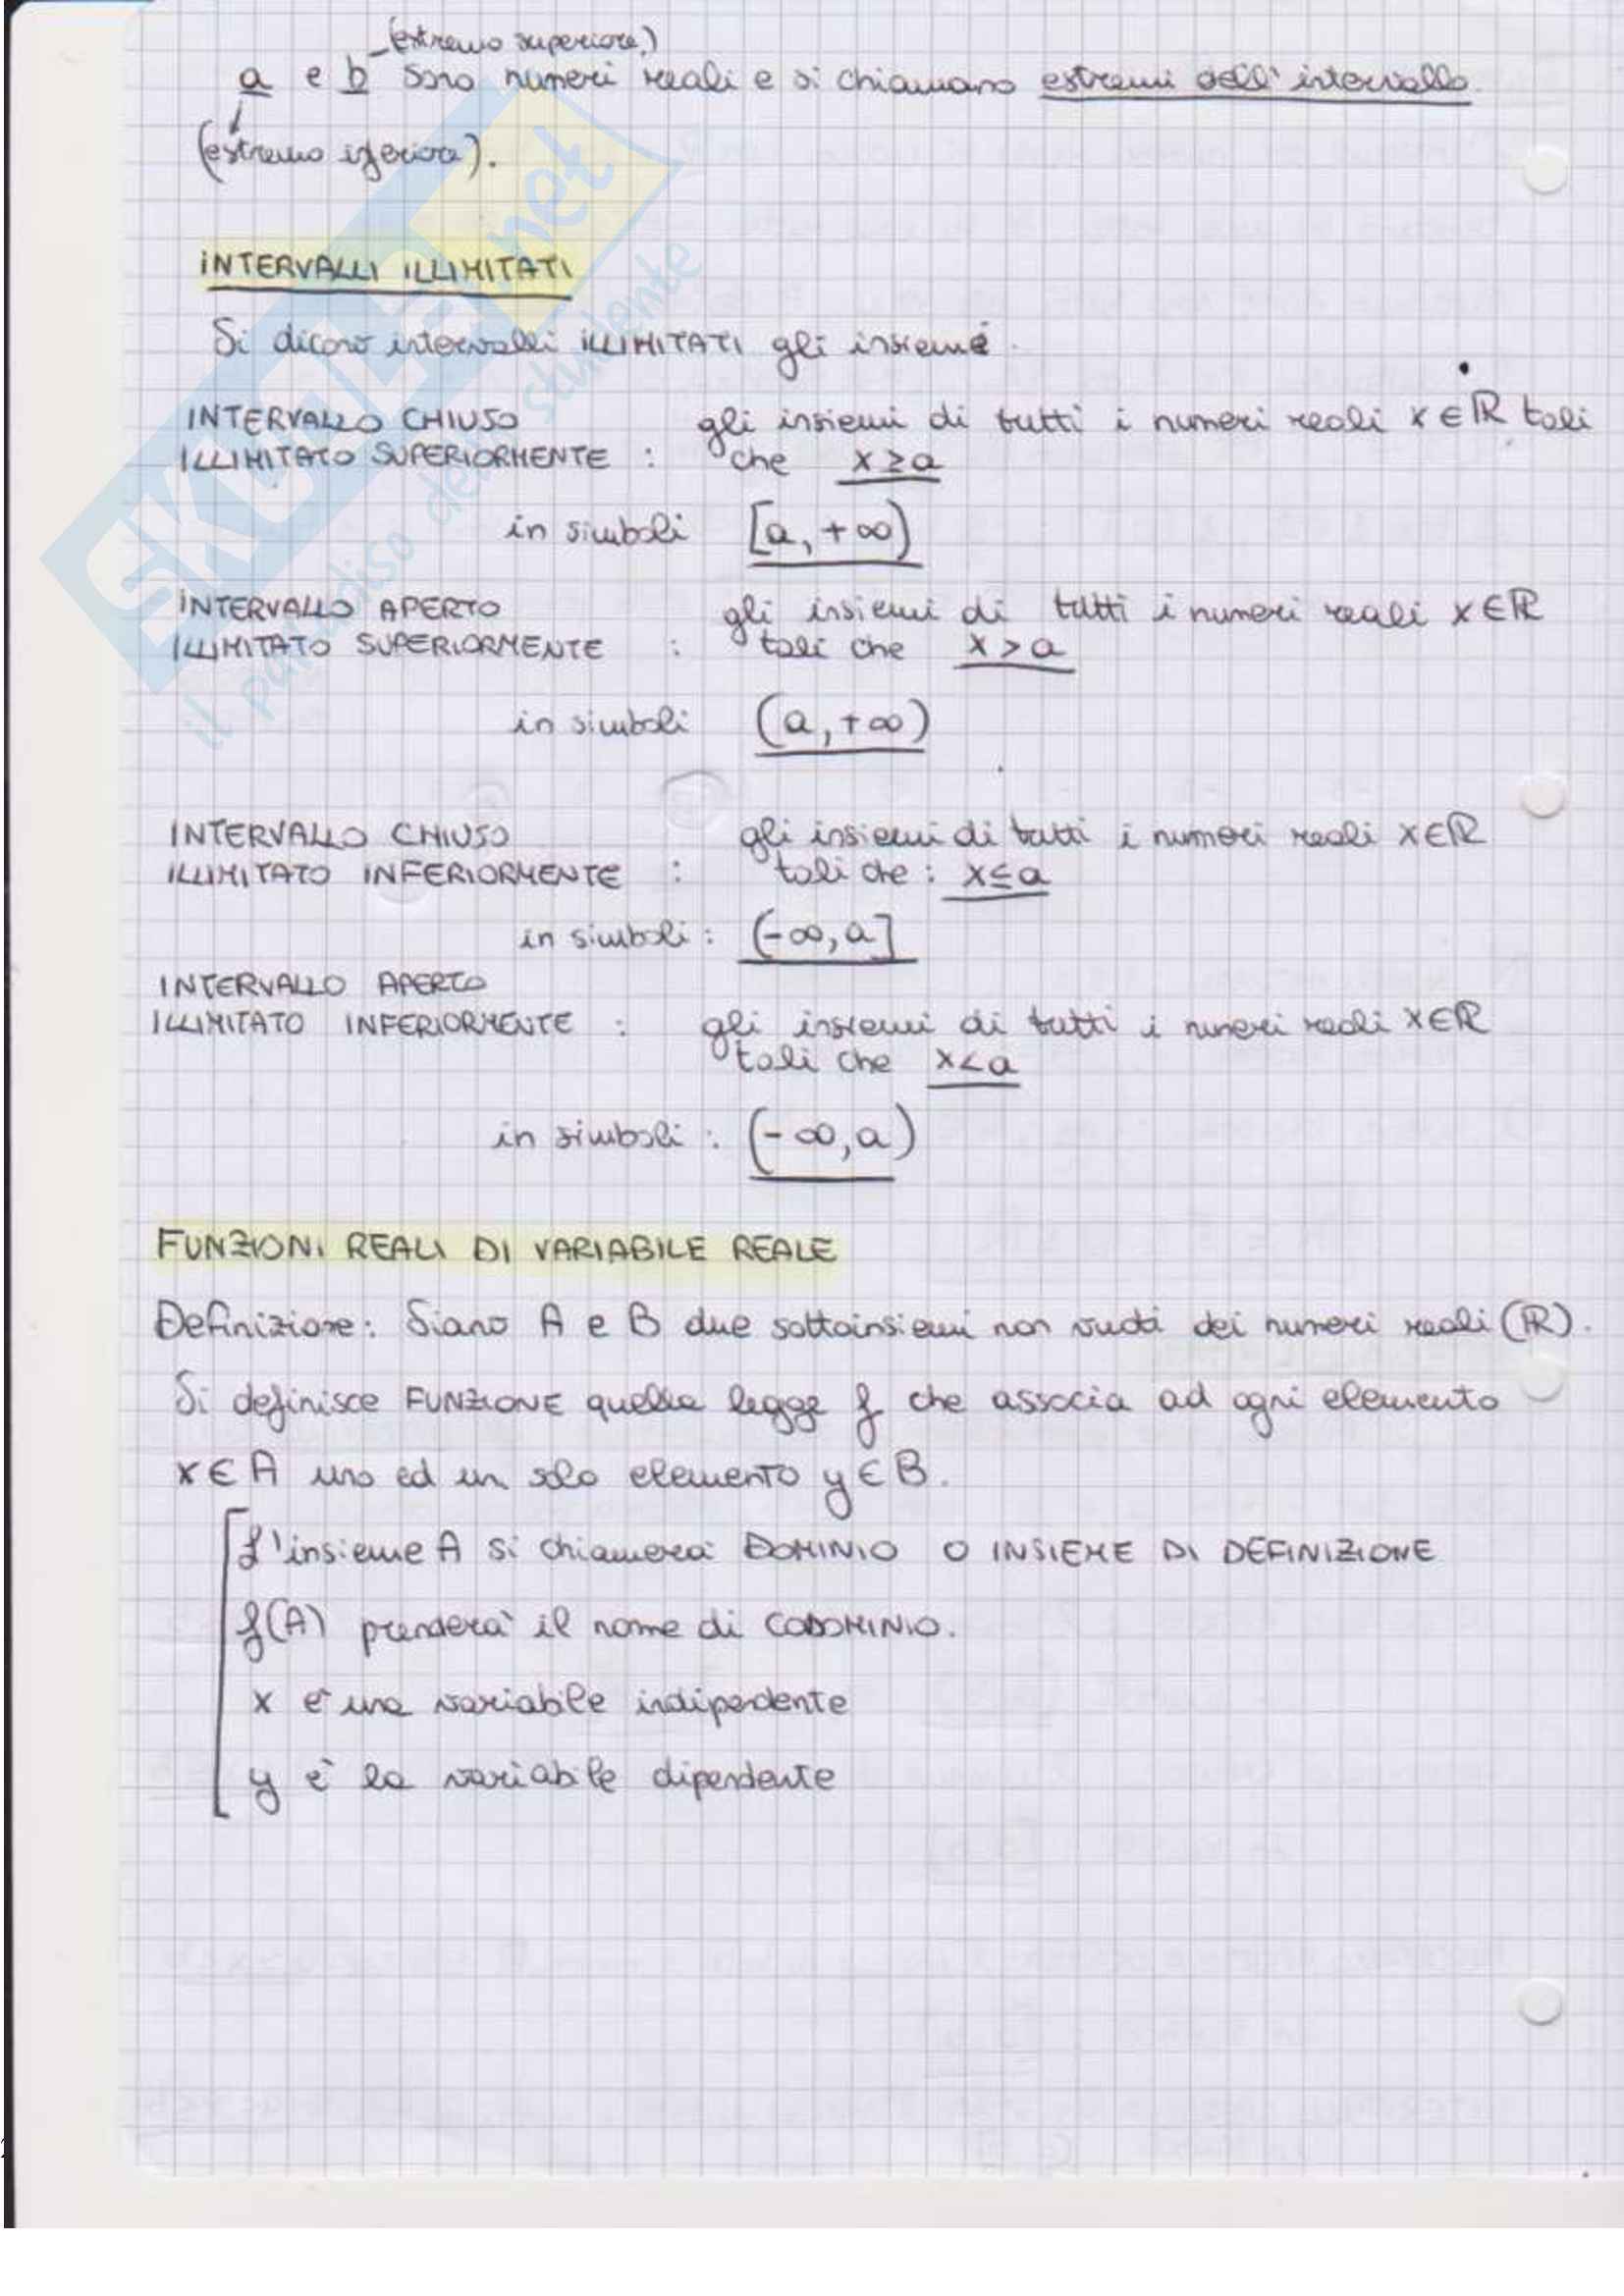 (estremo superiore)
a e b sono numeri reali e si chiamano estremi dell'intervallo
(estremo inferiore).
INTERVALLI ILLIMITATI
Si dicono intervalli ILLIMITATI gli insiemi
INTERVALLO CHIUSO gli insiemi di tutti i numeri reali x ∈ ℝ tali
ILLIMITATO SUPERIORMENTE : che x ≥ a
in simboli [a, +∞)
INTERVALLO APERTO gli insiemi di tutti i numeri reali x ∈ ℝ
ILLIMITATO SUPERIORMENTE : tali che x > a
in simboli (a, +∞)
INTERVALLO CHIUSO gli insiemi di tutti i numeri reali x ∈ ℝ
ILLIMITATO INFERIORMENTE : tali che : x ≤ a
in simboli : (-∞, a]
INTERVALLO APERTO
ILLIMITATO INFERIORMENTE : gli insiemi di tutti i numeri reali x ∈ ℝ
tali che x < a
in simboli : (-∞, a)
FUNZIONI REALI DI VARIABILE REALE
Definizione: Siano A e B due sottoinsiemi non vuoti dei numeri reali (ℝ).
Si definisce FUNZIONE quella legge f che associa ad ogni elemento
x ∈ A uno ed un solo elemento y ∈ B.
L'insieme A si chiamerà DOMINIO O INSIEME DI DEFINIZIONE
f(A) prenderà il nome di CODOMINIO.
x è una variabile indipendente
y è la variabile dipendente
SKUOLA.net
il paradiso dello studente